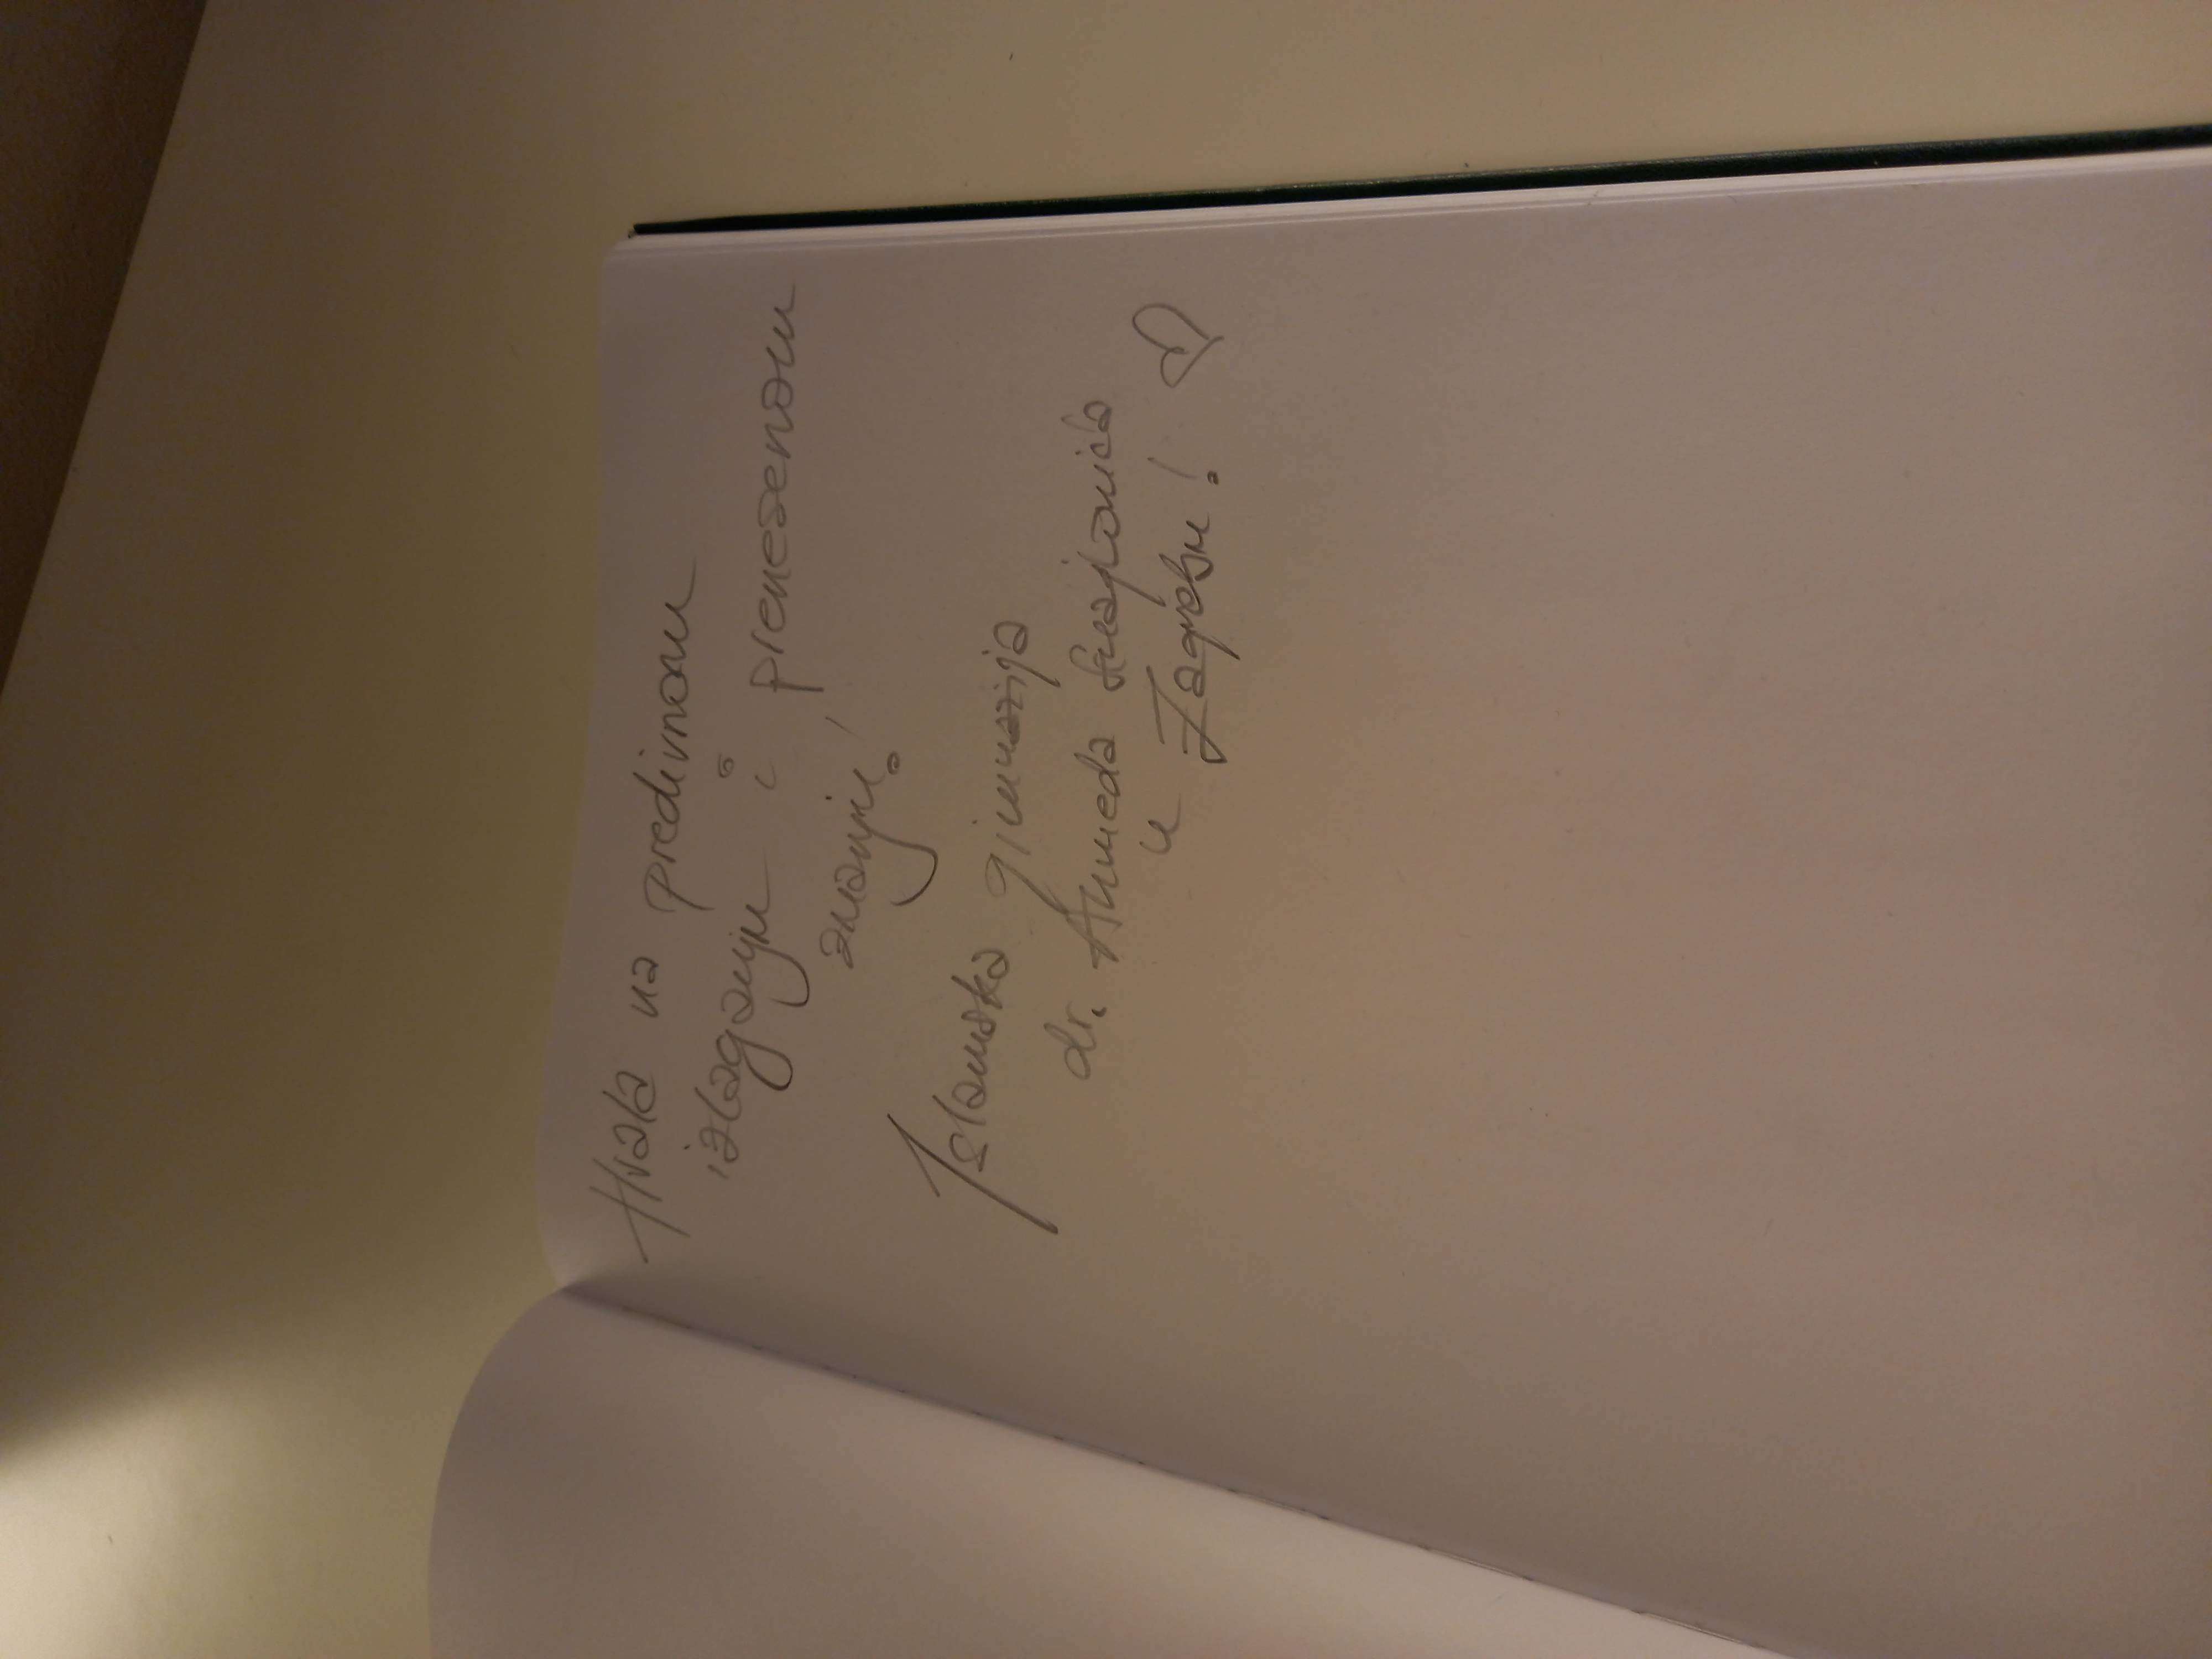 Hvala na predivnom
izlaganju i prenesenom
znanju!
Islamska gimnazija
dr. Ahmeda Smajlovića
u Zagrebu! ♡